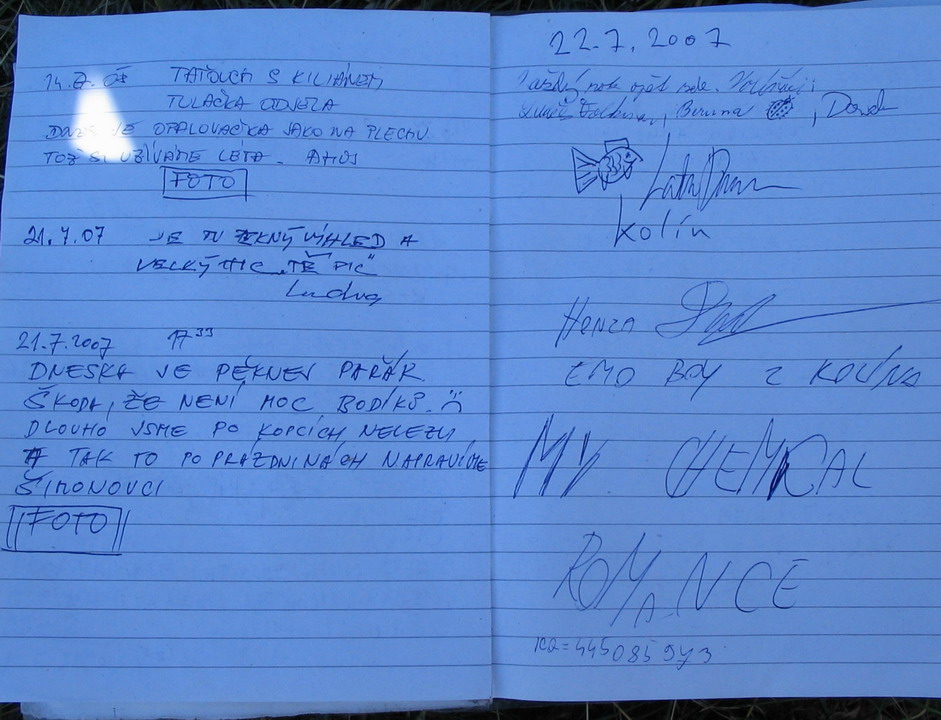 TAŤOUCH S KILIÁNEM
TULAČKA ODJELA
JE OPALOVAČKA JAKO NA PLECHU
TOŽ SI UŽÍVÁME LÉTA. AHOJ
FOTO
21.7.07 JE TU VÝHLED A
VELKÝ HIC „TĚ PIC“
21.7.2007 17³³
DNESKA JE PĚKNEJ PAŘÁK.
ŠKODA, ŽE NENÍ MOC BODÍKŮ.
DLOUHO JSME PO KOPCÍCH NELEZLI
A TAK TO PO PRÁZDNINÁCH NAPRAVÍME
ŠIMONOVCI
FOTO
22.7.2007
Kolín
HONZA
EMO BOY Z KOLÍNA
MY CHEMICAL
ROMANCE
ICQ=445085943